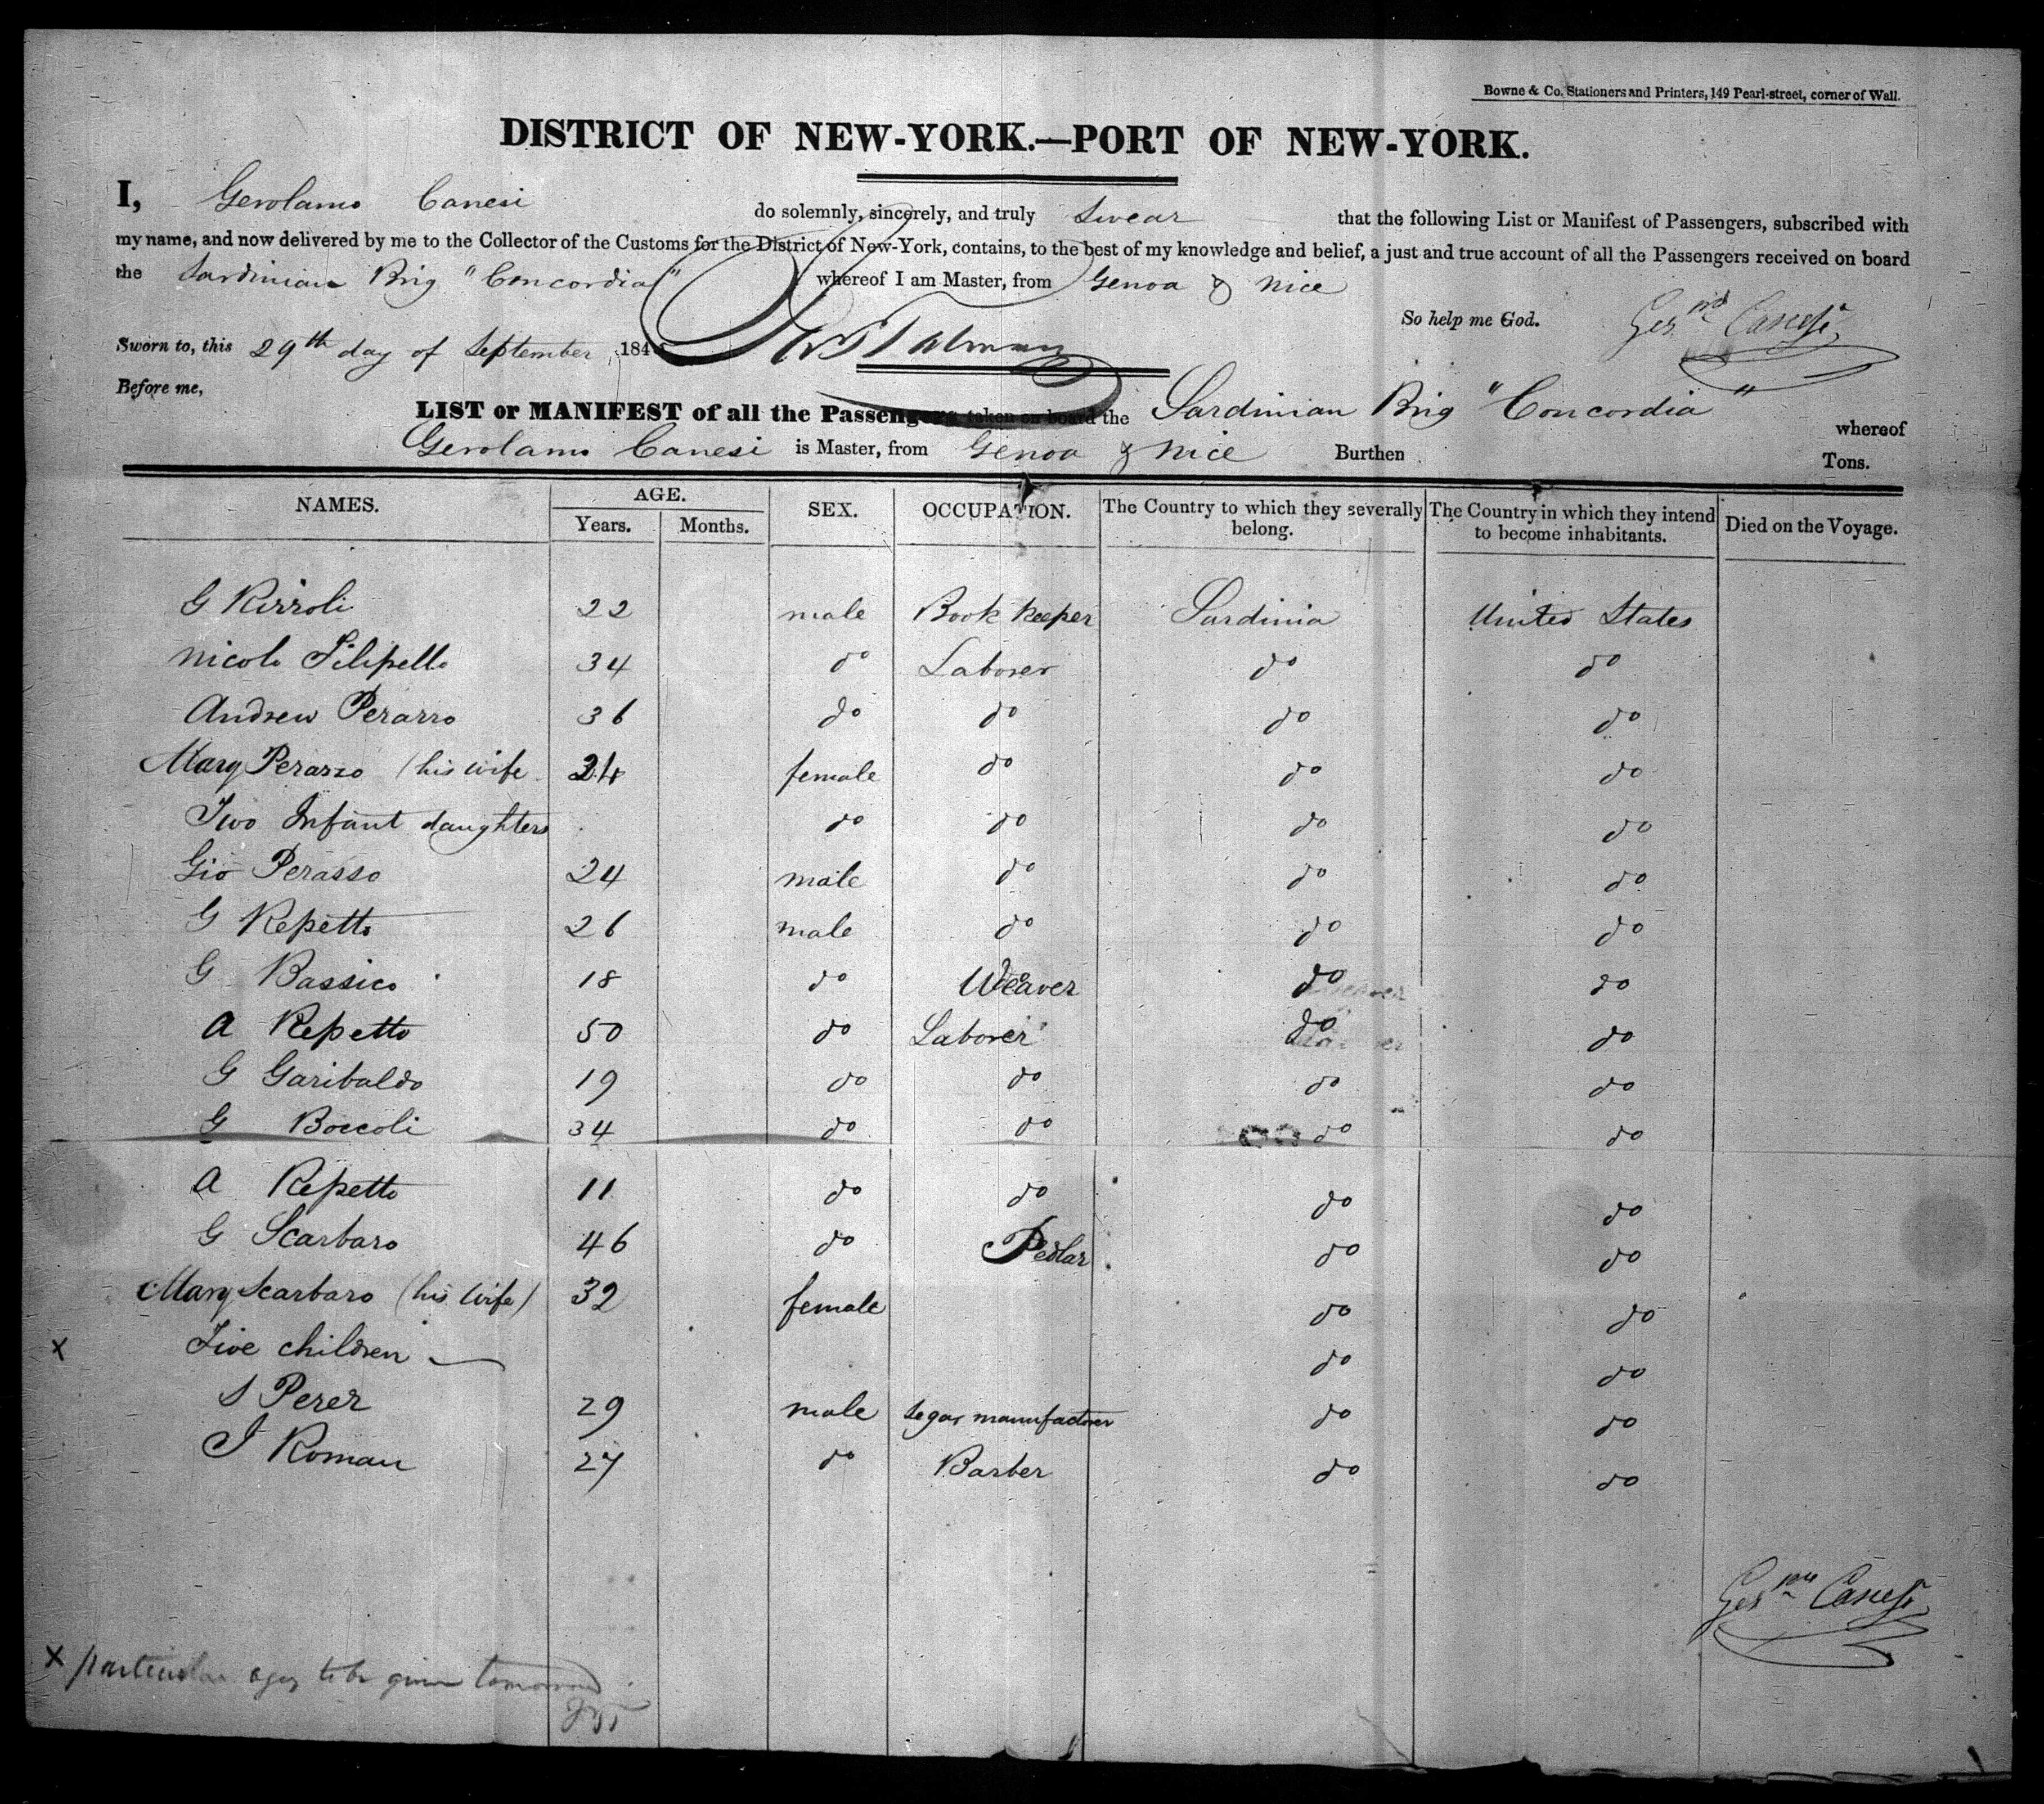 Bowne & Co. Stationers and Printers, 149 Pearl-street, corner of Wall.
DISTRICT OF NEW-YORK.—PORT OF NEW-YORK.
I, Gerolamo Canesi do solemnly, sincerely, and truly swear that the following List or Manifest of Passengers, subscribed with
my name, and now delivered by me to the Collector of the Customs for the District of New-York, contains, to the best of my knowledge and belief, a just and true account of all the Passengers received on board
the Sardinian Brig "Concordia" whereof I am Master, from Genoa & Nice
So help me God. Canesi
Sworn to, this 29th day of September 184
Before me,
LIST or MANIFEST of all the Passengers taken on board the Sardinian Brig "Concordia" whereof
Gerolamo Canesi is Master, from Genoa & Nice Burthen Tons.
NAMES. AGE. Years. Months. SEX. OCCUPATION. The Country to which they severally belong. The Country in which they intend to become inhabitants. Died on the Voyage.
G Rizzoli 22 male Book keeper Sardinia United States
Nicolo Filipello 34 do Laborer do do
Andrew Perazzo 36 do do do do
Mary Perazzo (his wife 24 female do do do
Two Infant daughters do do do do
Gio Perasso 24 male do do do
G Repetto 26 male do do do
G Bassico 18 do Weaver do do
A Repetto 50 do Laborer do do
G Garibaldo 19 do do do do
G Boccoli 34 do do do do
A Repetto 11 do do do do
G Scarbaro 46 do Pedlar do do
Mary Scarbaro (his wife) 32 female do do
x Five children do do
S Perez 29 male segar manufacturer do do
J Roman 27 do Barber do do
Canesi
x particular ages to be given tomorrow